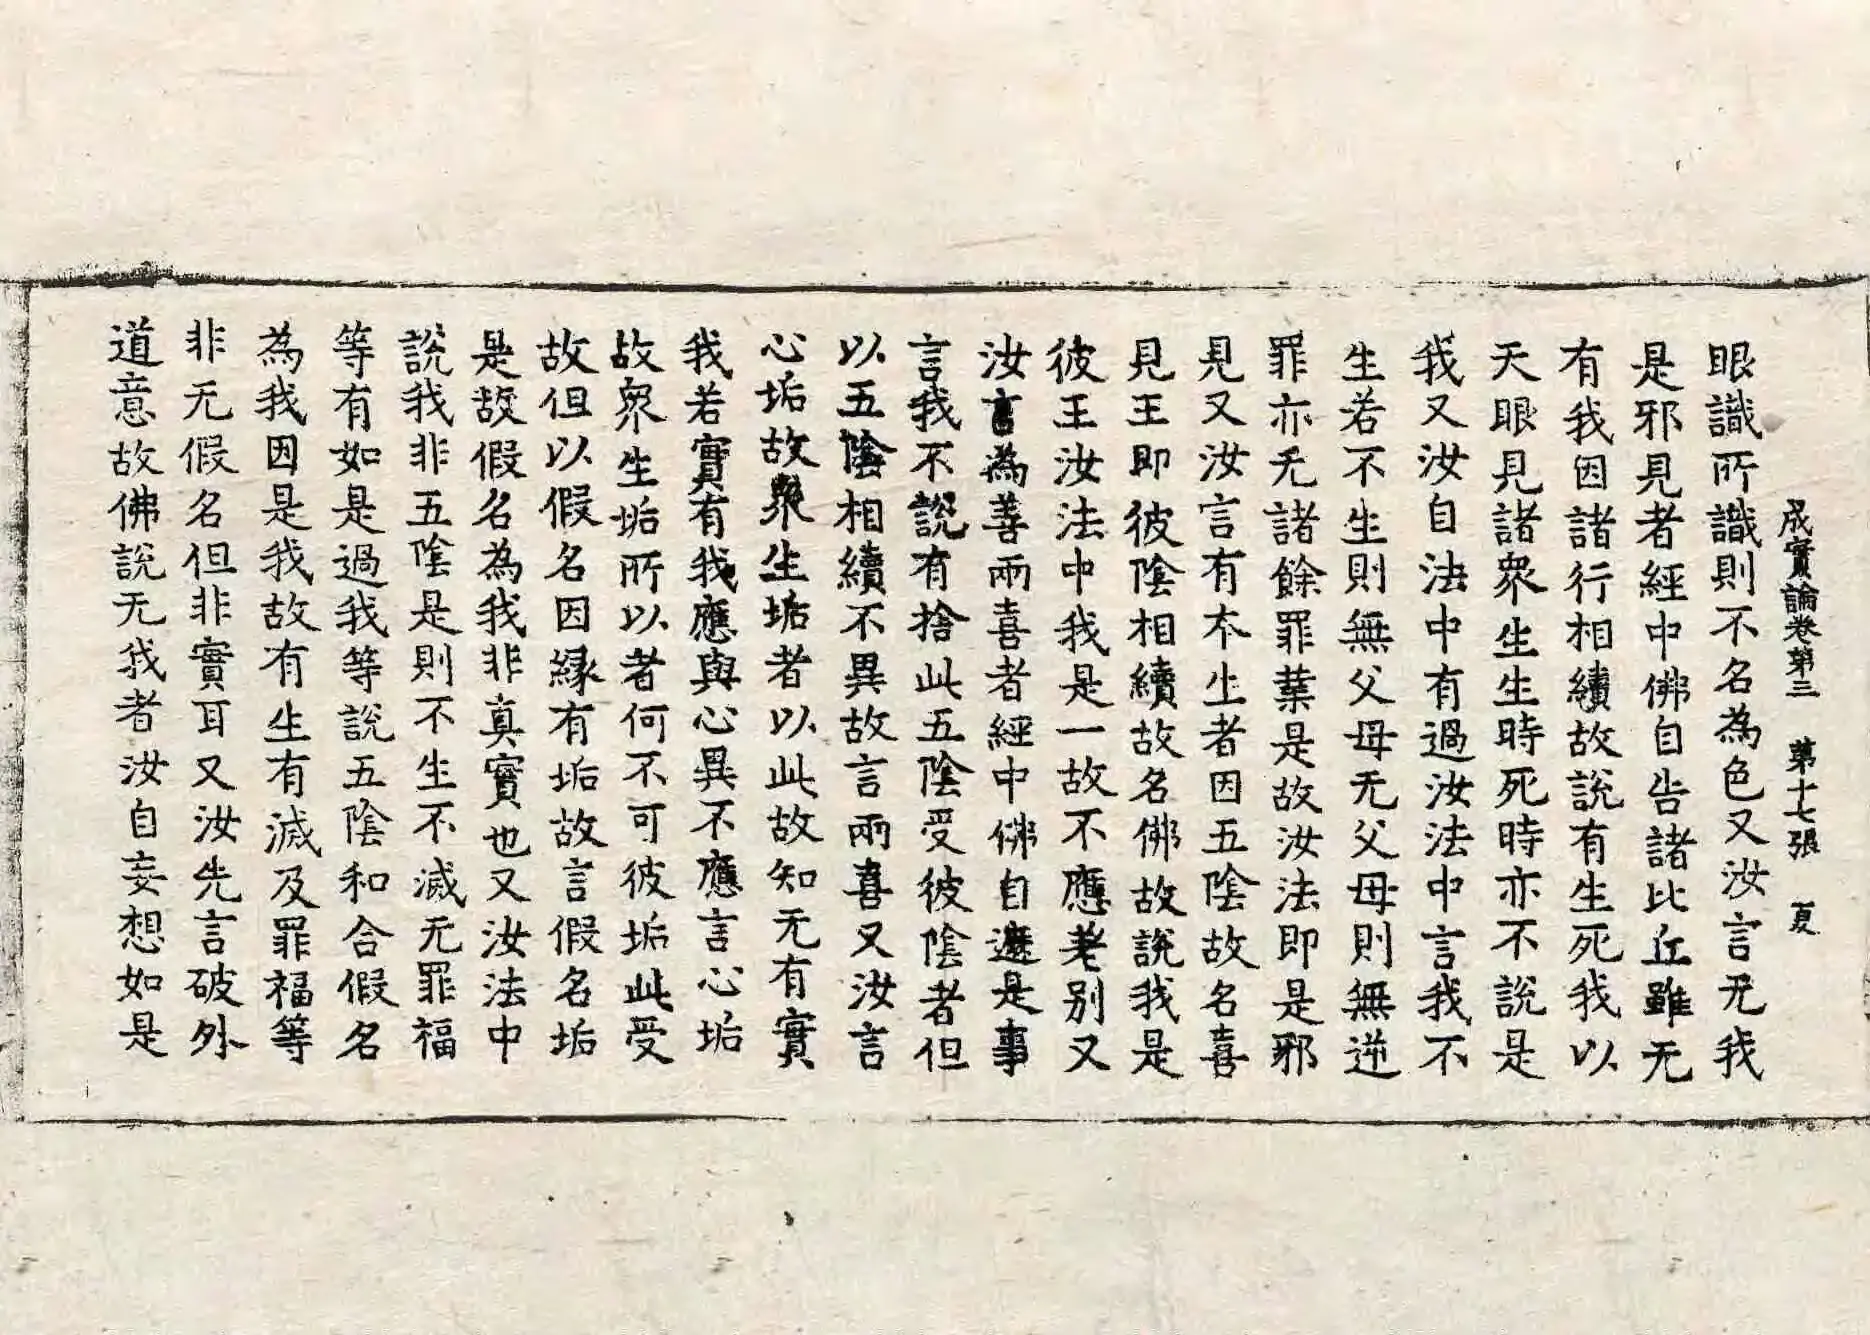 成實論卷第三　第十七張　夏
眼識所識則不名為色又汝言无我
是邪見者經中佛自告諸比丘雖无
有我因諸行相續故說有生死我以
天眼見諸衆生生時死時亦不說是
我又汝自法中有過汝法中言我不
生若不生則無父母无父母則無逆
罪亦无諸餘罪業是故汝法即是邪
見又汝言有本生者因五陰故名喜
見王即彼陰相續故名佛故說我是
彼王汝法中我是一故不應差別又
汝言為善兩喜者經中佛自遮是事
言我不說有捨此五陰受彼陰者但
以五陰相續不異故言兩喜又汝言
心垢故衆生垢者以此故知无有實
我若實有我應與心異不應言心垢
故衆生垢所以者何不可彼垢此受
故但以假名因緣有垢故言假名垢
是故假名為我非真實也又汝法中
說我非五陰是則不生不滅无罪福
等有如是過我等說五陰和合假名
為我因是我故有生有滅及罪福等
非无假名但非實耳又汝先言破外
道意故佛說无我者汝自妄想如是